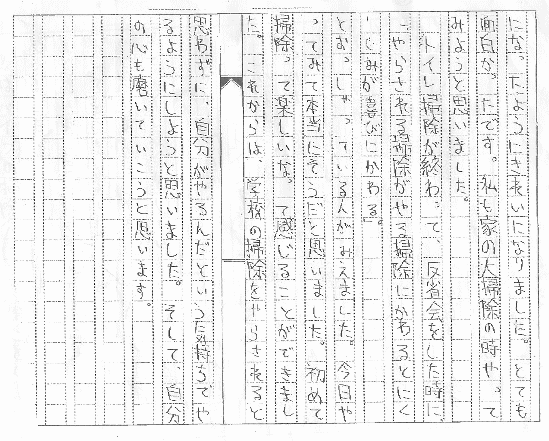 になったようにきれいになりました。とても
面白かったです。私も家の大掃除の時やって
みようと思いました。
トイレ掃除が終わって、反省会をした時に、
「やらされる掃除がやる掃除にかわるとにく
しみが喜びにかわる」
とおっしゃっている人がみえました。今日や
ってみて本当にそうだと思いました。初めて
掃除って楽しいな。って感じることができまし
た。これからは、学校の掃除をやらされると
思わずに、自分がやるんだという気持ちでや
るようにしようと思いました。そして、自分
の心も磨いていこうと思います。